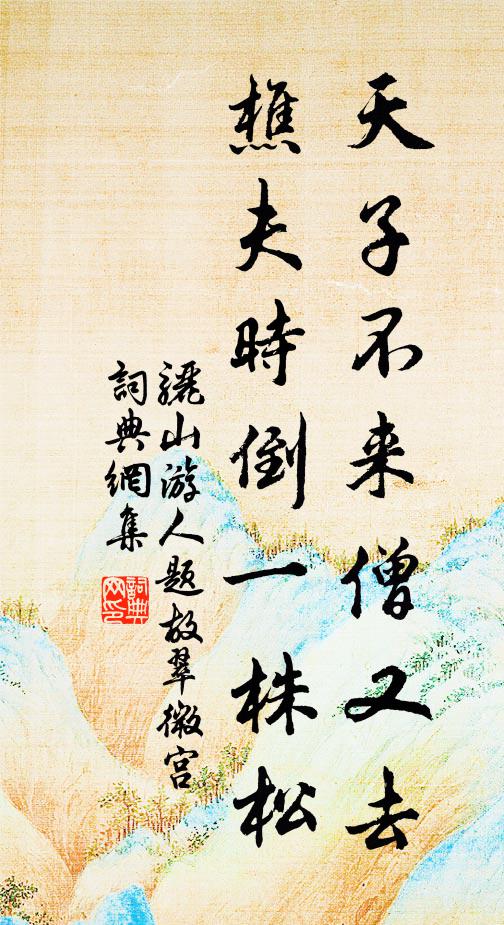 天子不来僧又去
樵夫時倒一株松
驪山游人題故翠微宫
詞典網集
詞典
网印